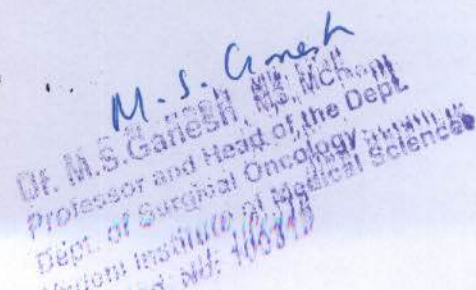 M.S. Ganesh
Dr. M.S. Ganesh, MS, MCh
Professor and Head of the Dept.
Dept. of Surgical Oncology
Institute of Medical Sciences